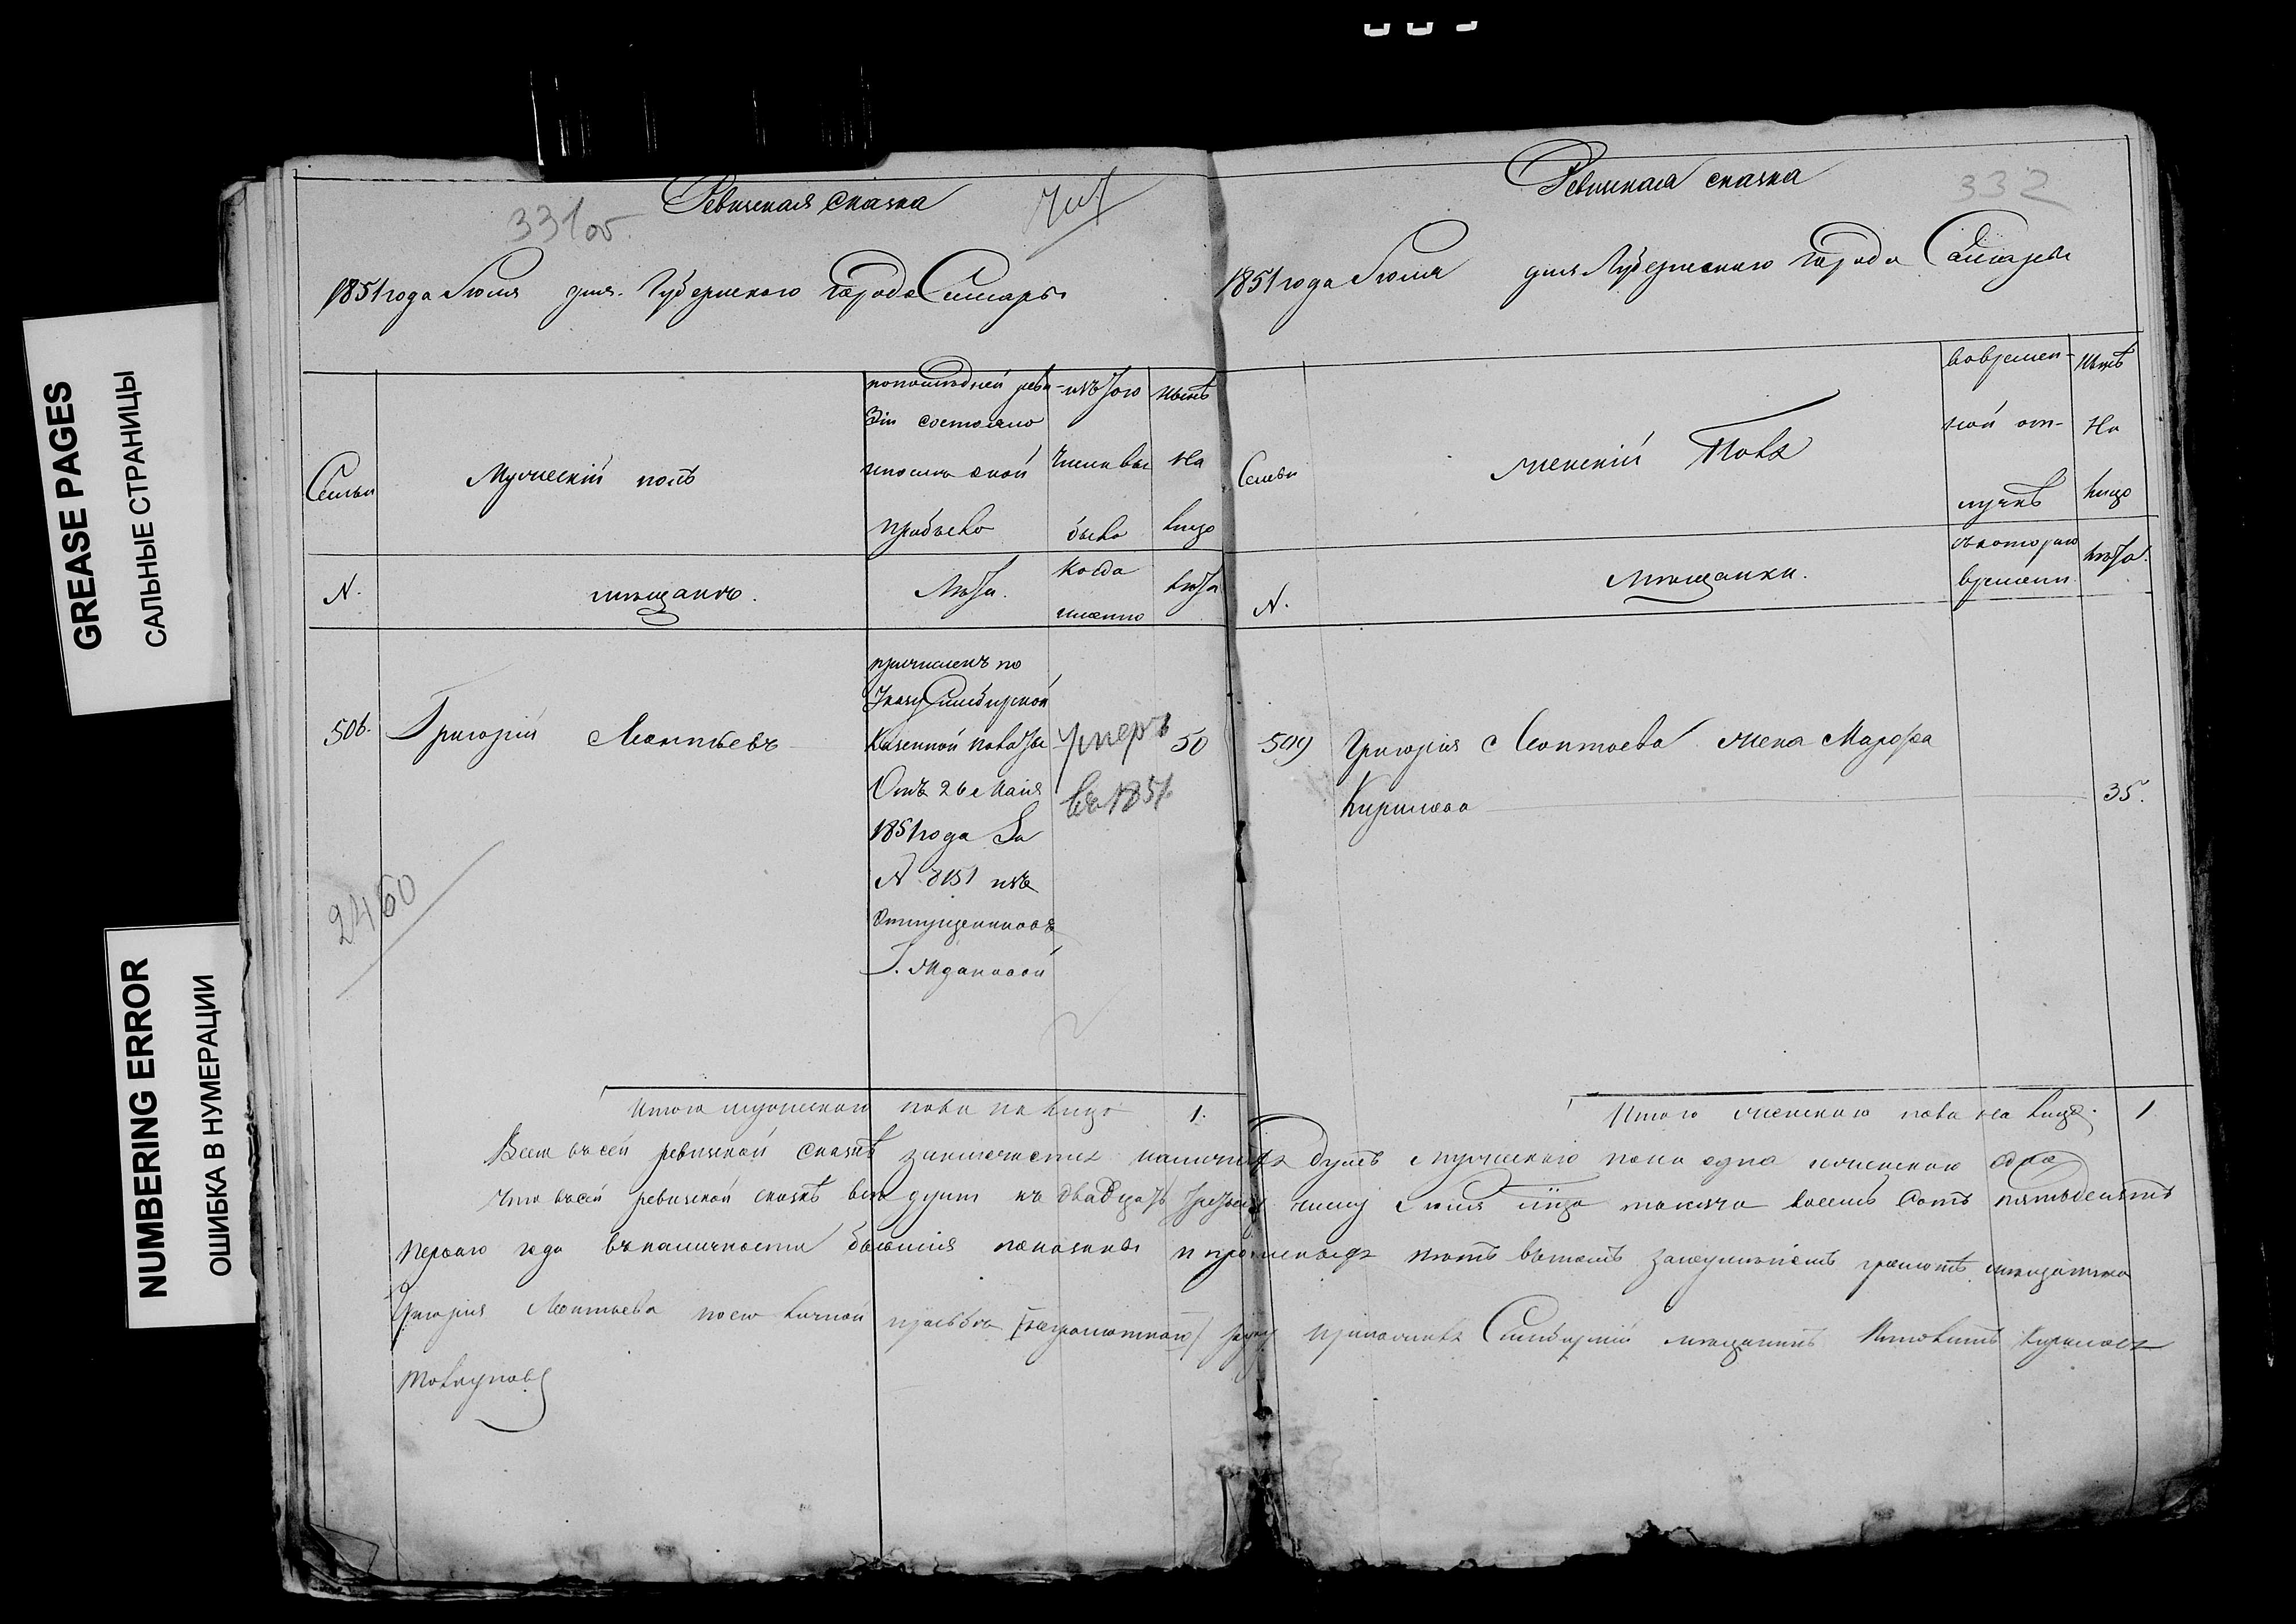 GREASE PAGES
САЛЬНЫЕ СТРАНИЦЫ
NUMBERING ERROR
ОШИБКА В НУМЕРАЦИИ
331об.
Ревизская сказка
1851 года Июля дня. Губернского города Самары
Семьи
Мужескій полъ
по последней реви-
зіи состояло
и после оной
прибыло
изъ того
числа вы
было
ныне
на
лицо
N.
мещане.
Лета.
когда
именно
лета
506.
Григорій Леонтьевъ
причисленъ по
Указу Симбирской
Казенной палаты
Отъ 26 Маія
1851 года За
N 8151 изъ
отпущенниковъ
Г. Ждановой
умеръ
въ 1851.
50
2460
Итого мужескаго пола на лицо 1.
332
Ревизская сказка
1851 года Июля дня Губернского города Самары
Семьи
женскій Полъ
вовремен-
ной от-
лучкѣ
Нынѣ
На
лицо
N.
мещанки.
съ котораго
времени
лета.
509
Григорія Леонтьева жена Марфа
Кирилова
35.
Итого женскаго пола на лицо. 1
Всего въ сей ревизской сказкѣ заключается наличныхъ душъ мужескаго пола одна женскаго одна
Что въ сей ревизской сказкѣ все души къ двадцать третьему числу Июля тысяча восемь сотъ пятьдесятъ
перваго года въ наличности бывшія показаны и прописныхъ нетъ въ томъ
Григорія Леонтьева по его личной прозьбе (неграмотнаго) руку приложилъ Симбирскій мещанинъ Кириловъ